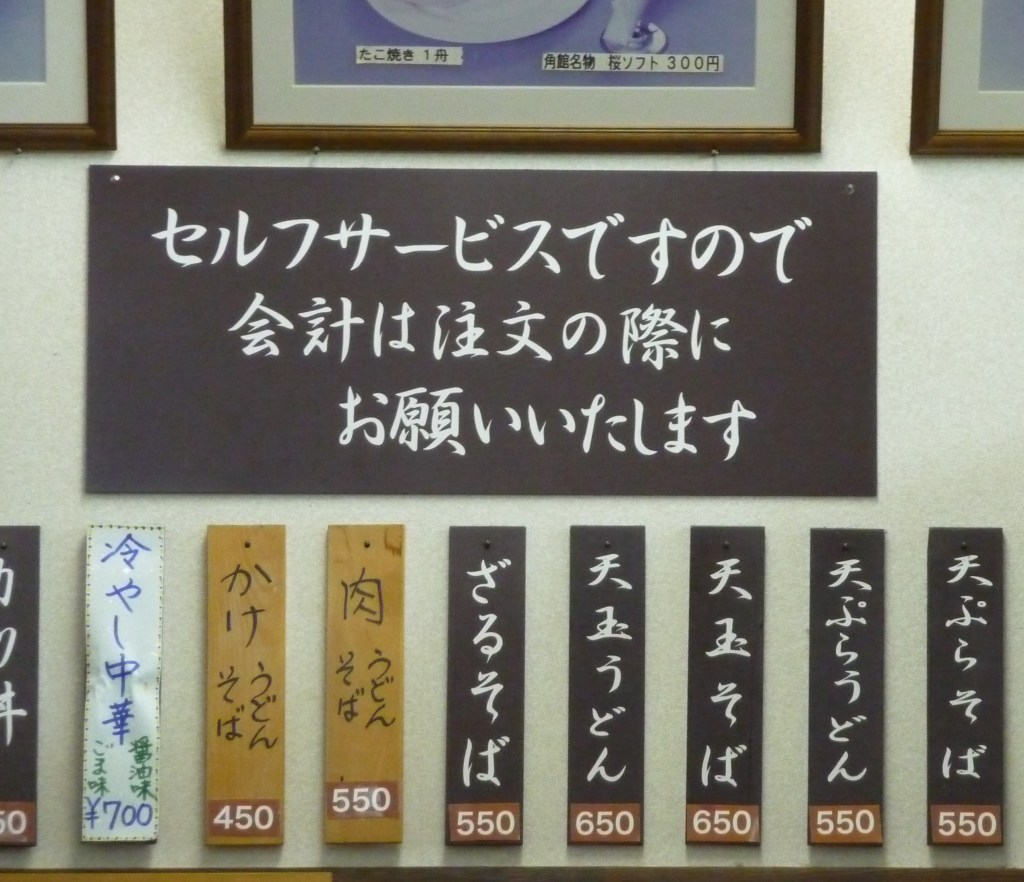 たこ焼き 1舟
角館名物 桜ソフト 300円
セルフサービスですので
会計は注文の際に
お願いいたします
天ぷらそば
550
天ぷらうどん
550
天玉そば
650
天玉うどん
650
ざるそば
550
肉
うどん
そば
550
かけ
うどん
そば
450
冷やし中華
醤油味
ごま味
¥700